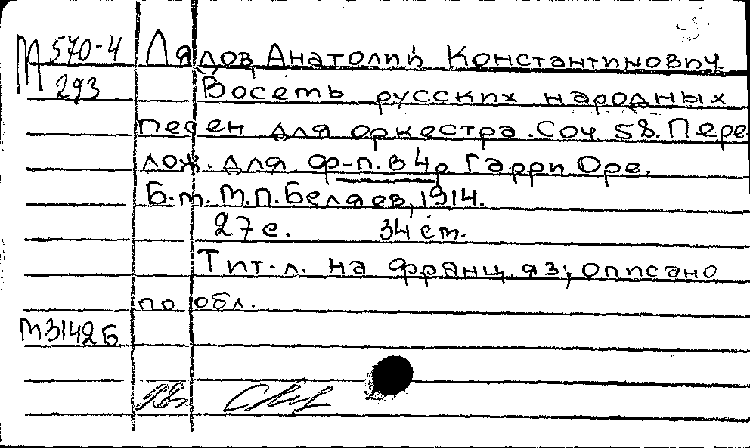 М 570-4 Лядов Анатолий Константинович
293 Восемь русских народных
песен для оркестра. Соч 58. Пере
лож. для ф-п. в 4р Гарри Оре.
Б.м. М.П. Беляев, 1914.
27 с. 34 см.
Тит. л. на франц. яз; описано
по обл.
М3142Б